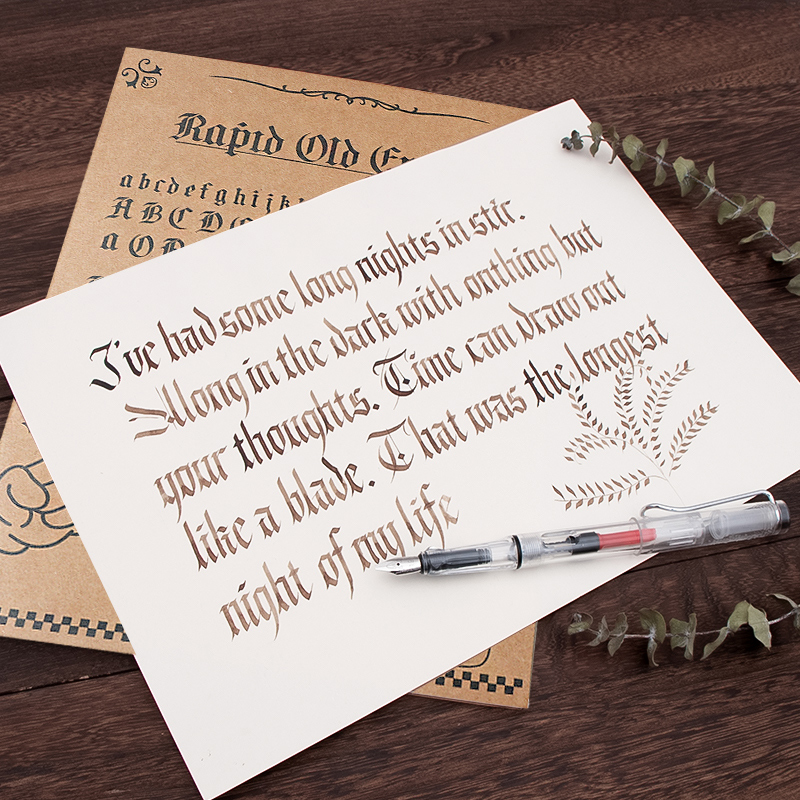 Rapid Old En
abcdefghijk
ABCD
aOD
I've had some long nights in stir.
Allong in the dark with onthing but
your thoughts. Time can draw out
like a blade. That was the longest
night of my life